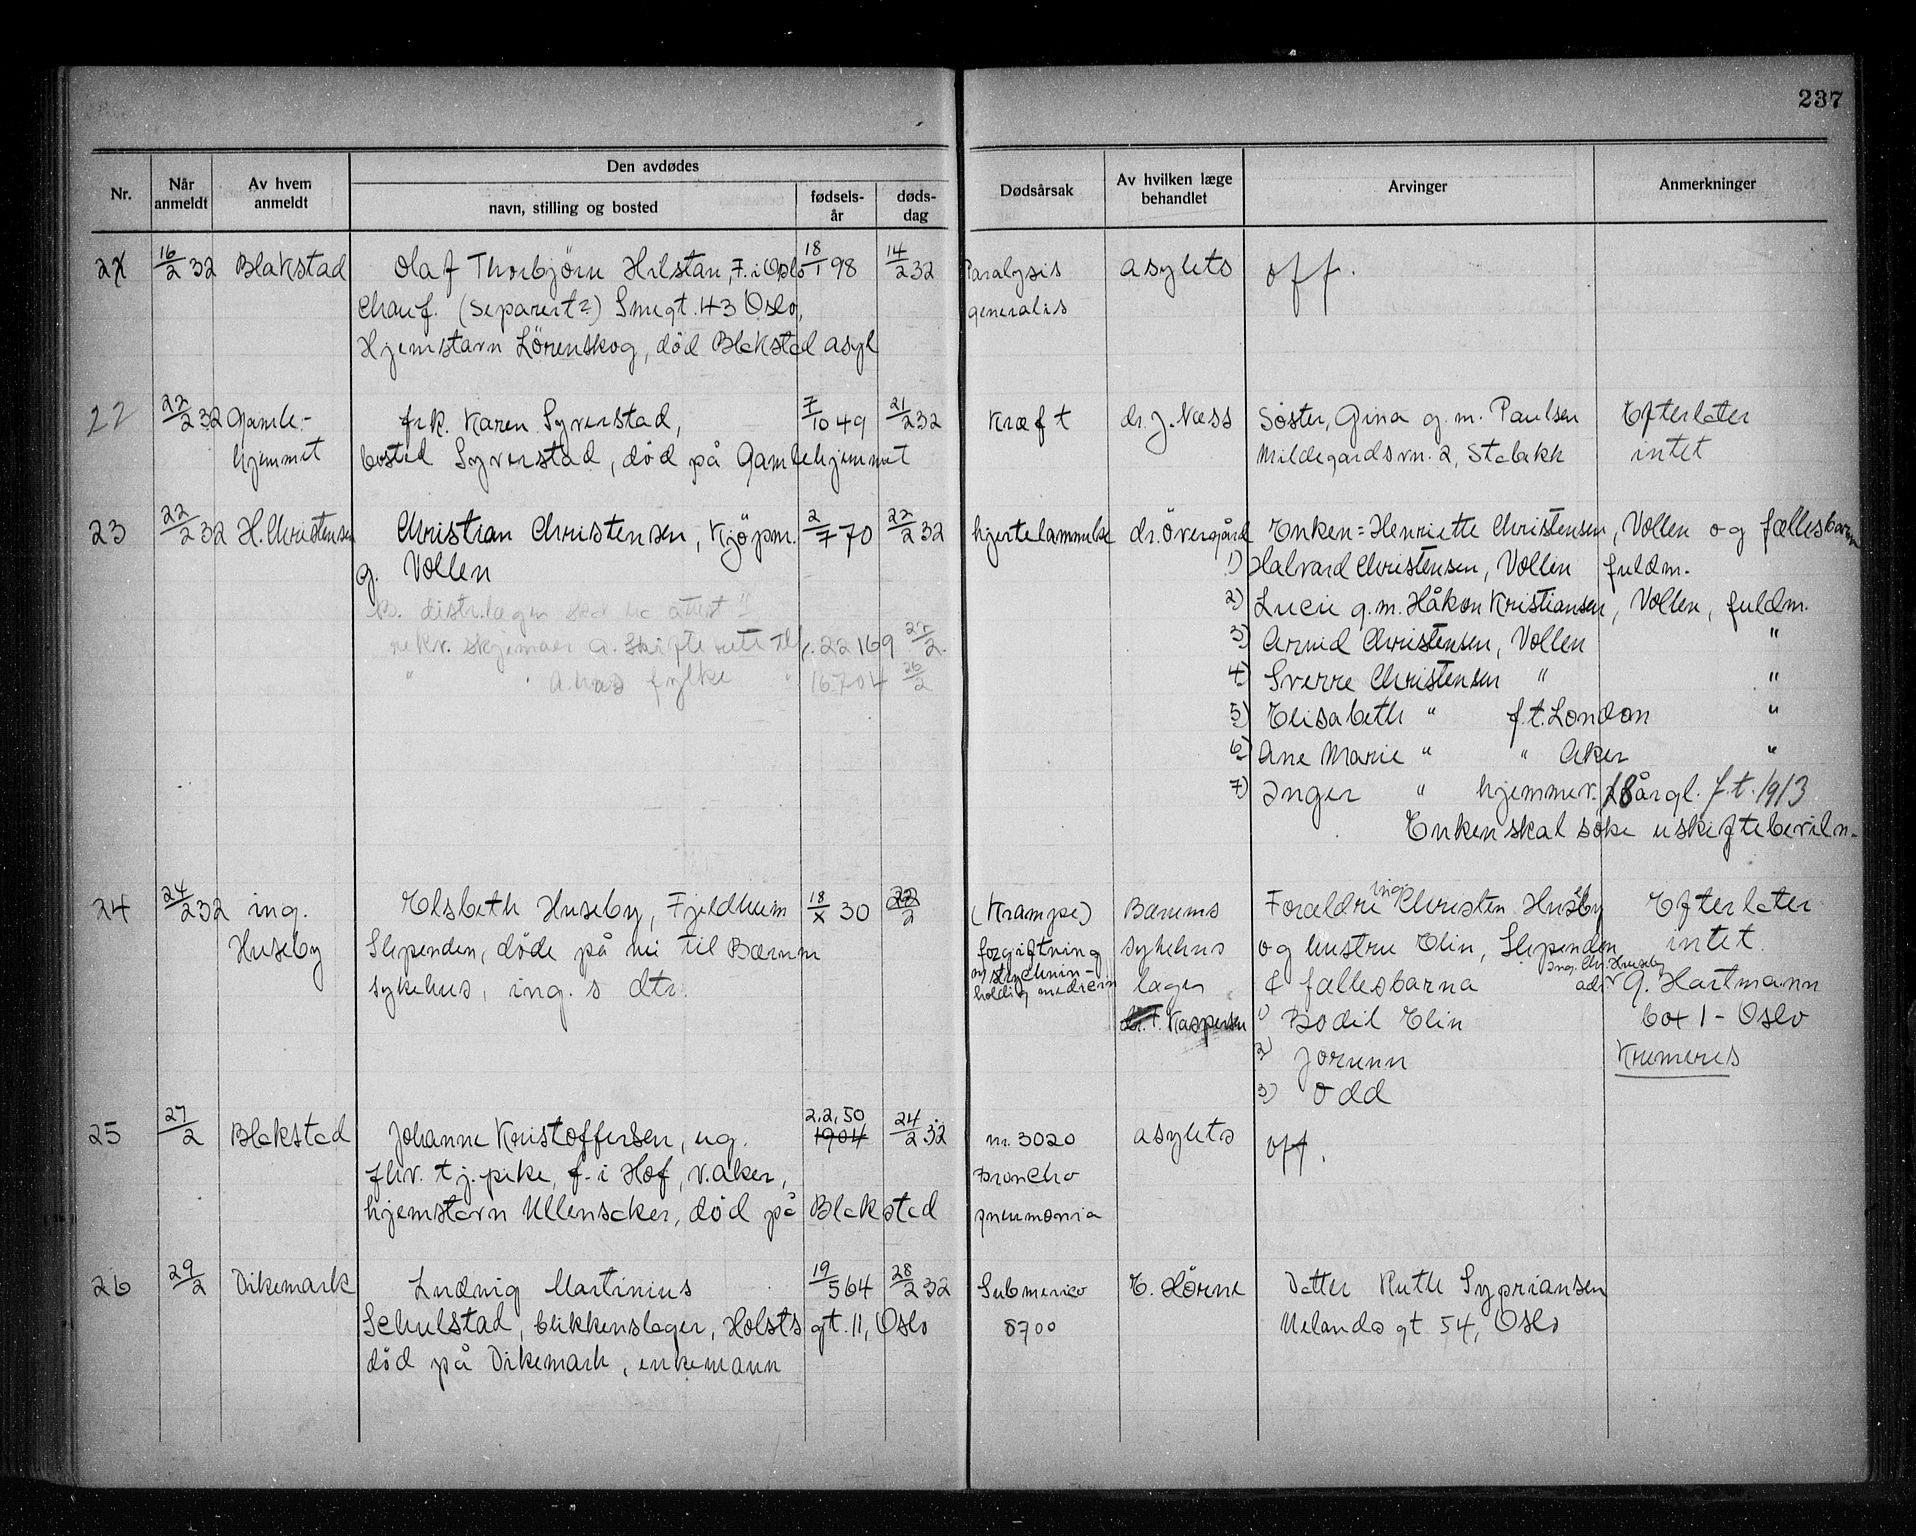 237
Nr. Når anmeldt Av hvem anmeldt Den avdødes navn, stilling og bosted fødsels-år døds-dag Dødsårsak Av hvilken læge behandlet Arvinger Anmerkninger
16/2 32 Blakstad Olaf Thorbjörn Hilstan, F. i Oslo 18/1 98 14/2 32 Paralysis asylets off.
Chauf. (separert?) Smegt. 43 Oslo, generalis
Hjemstavn Lörenskog, död Blakstad asyl
22 22/2 32 Gamle- frk. Karen Syverstad, 7/10 49 21/2 32 Kræft dr. J. Næss Søster, Gina g. m. Paulsen Efterlater
hjemmet bosted Syverstad, död på Gamlehjemmet Mildegardsvn. 2, Stabekk intet
23 22/2 32 H. Christensen Christian Christensen, Kjöpm. 2/7 70 22/2 32 hjertelammelse dr. Övergård Enken = Henriette Christensen, Vollen og fællesbarn
g. Vollen 1) Halvard Christensen, Vollen fuldm.
distr.lægen attest 2) Lucie g. m. Håkon Kristiansen, Vollen, fuldm.
skjemaer a. Skifterett Tlf. 22169 27/2. 3) Arvid Christensen, Vollen "
" fylke " 16704 26/2 4) Sverre Christensen " "
5) Elisabeth " f.t. London "
6) Ane Marie " " Aker "
7) Inger " hjemmev. 18 årgl. f.t. 1913
Enken skal söke uskiftebeviln.
24 24/2 32 ing. Elsbeth Huseby, Fjeldheim 18/X 30 22/2 (Krampe) Bærums Forældre ing. Christen Huseby Efterlater
Huseby Slependen, döde på vei til Bærum forgiftning sykehus og hustru Elin, Slependen intet.
sykehus, ing.s dtr. strychnin-holdig medicin læger & fællesbarna ing. Chr. Huseby adr. G. Hartmann
dr. F. Kaspersen 1) Bodil Elin box 1 - Oslo
2) Jorunn
3) Odd
25 27/2 Blakstad Johanne Kristoffersen, ug. 2.2.50 1904 24/2 32 nr. 3020 asylets off.
fhv. tj.pike, f. i Hof, v. Aker, Broncho
hjemstavn Ullensaker, död på Blakstad pneumonia
26 29/2 Dikemark Ludvig Martinius 19/5 64 28/2 32 E. Hörne Datter Ruth Sypriansen
Schulstad, blikkenslager, Holsts gt. 11, Oslo 8700 Uelands gt 54, Oslo
död på Dikemark, enkemann